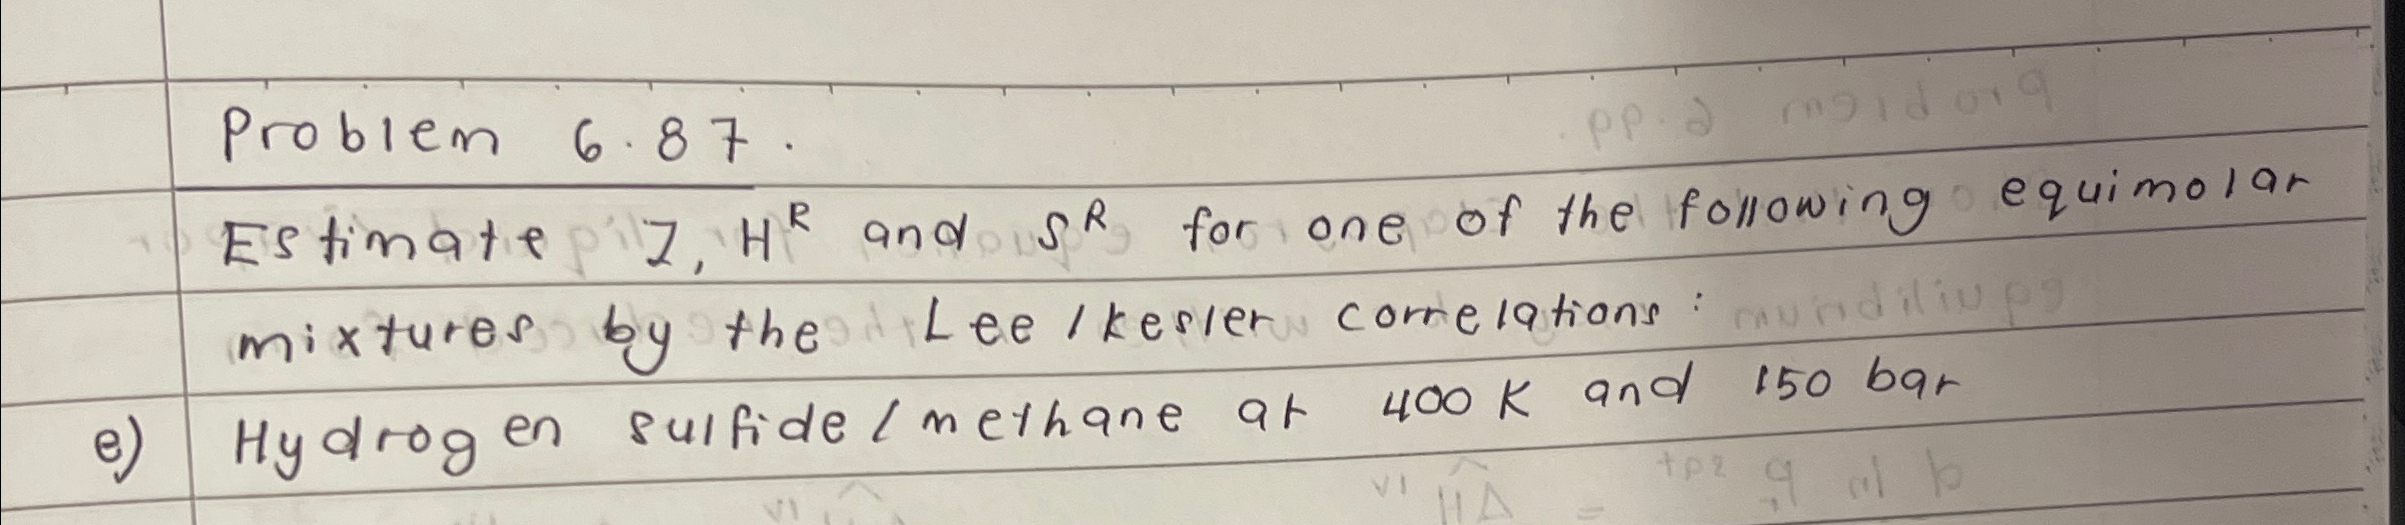 Problem 6.87.
Estimate Z, H^R and S^R for one of the following equimolar
mixtures by the Lee/kesler correlations:
e) Hydrogen sulfide/methane at 400 K and 150 bar